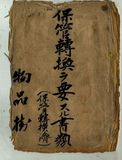 保管轉換ヲ要スル書類
(保管轉換済)
物品掛